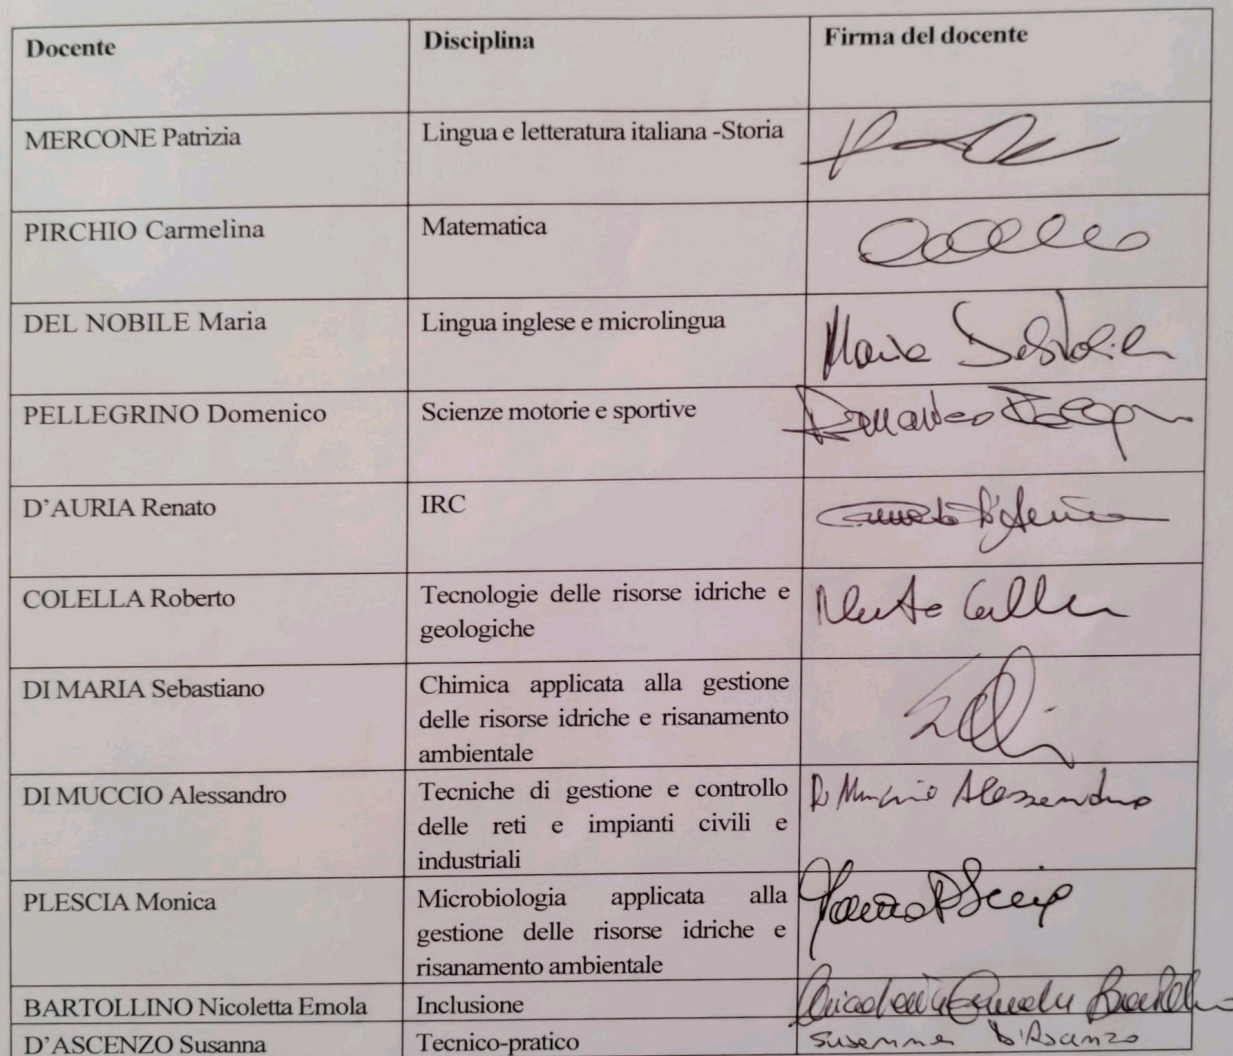 Docente Disciplina Firma del docente
MERCONE Patrizia Lingua e letteratura italiana -Storia
PIRCHIO Carmelina Matematica
DEL NOBILE Maria Lingua inglese e microlingua Maria
PELLEGRINO Domenico Scienze motorie e sportive
D'AURIA Renato IRC
COLELLA Roberto Tecnologie delle risorse idriche e
geologiche
DI MARIA Sebastiano Chimica applicata alla gestione
delle risorse idriche e risanamento
ambientale
DI MUCCIO Alessandro Tecniche di gestione e controllo Di Muccio Alessandro
delle reti e impianti civili e
industriali
PLESCIA Monica Microbiologia applicata alla
gestione delle risorse idriche e
risanamento ambientale
BARTOLLINO Nicoletta Emola Inclusione
D'ASCENZO Susanna Tecnico-pratico Susanna D'Ascenzo